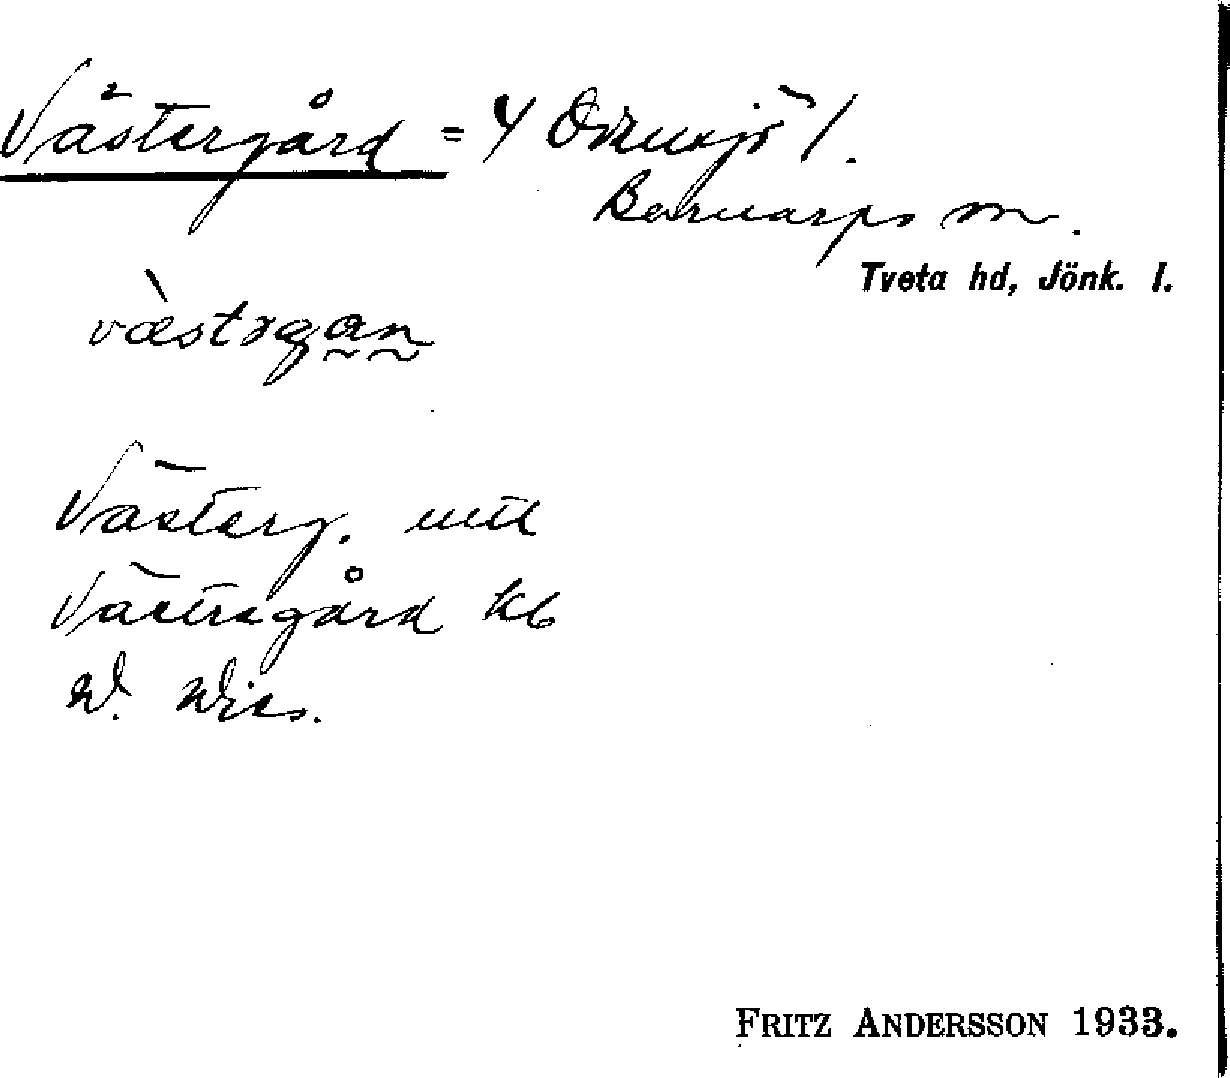 Västergård = 4 Örnsjö /.
Barnarps sn.
Tveta hd, Jönk. l.
væstrgan
Västerg. uttl
Västregård kb
FRITZ ANDERSSON 1933.